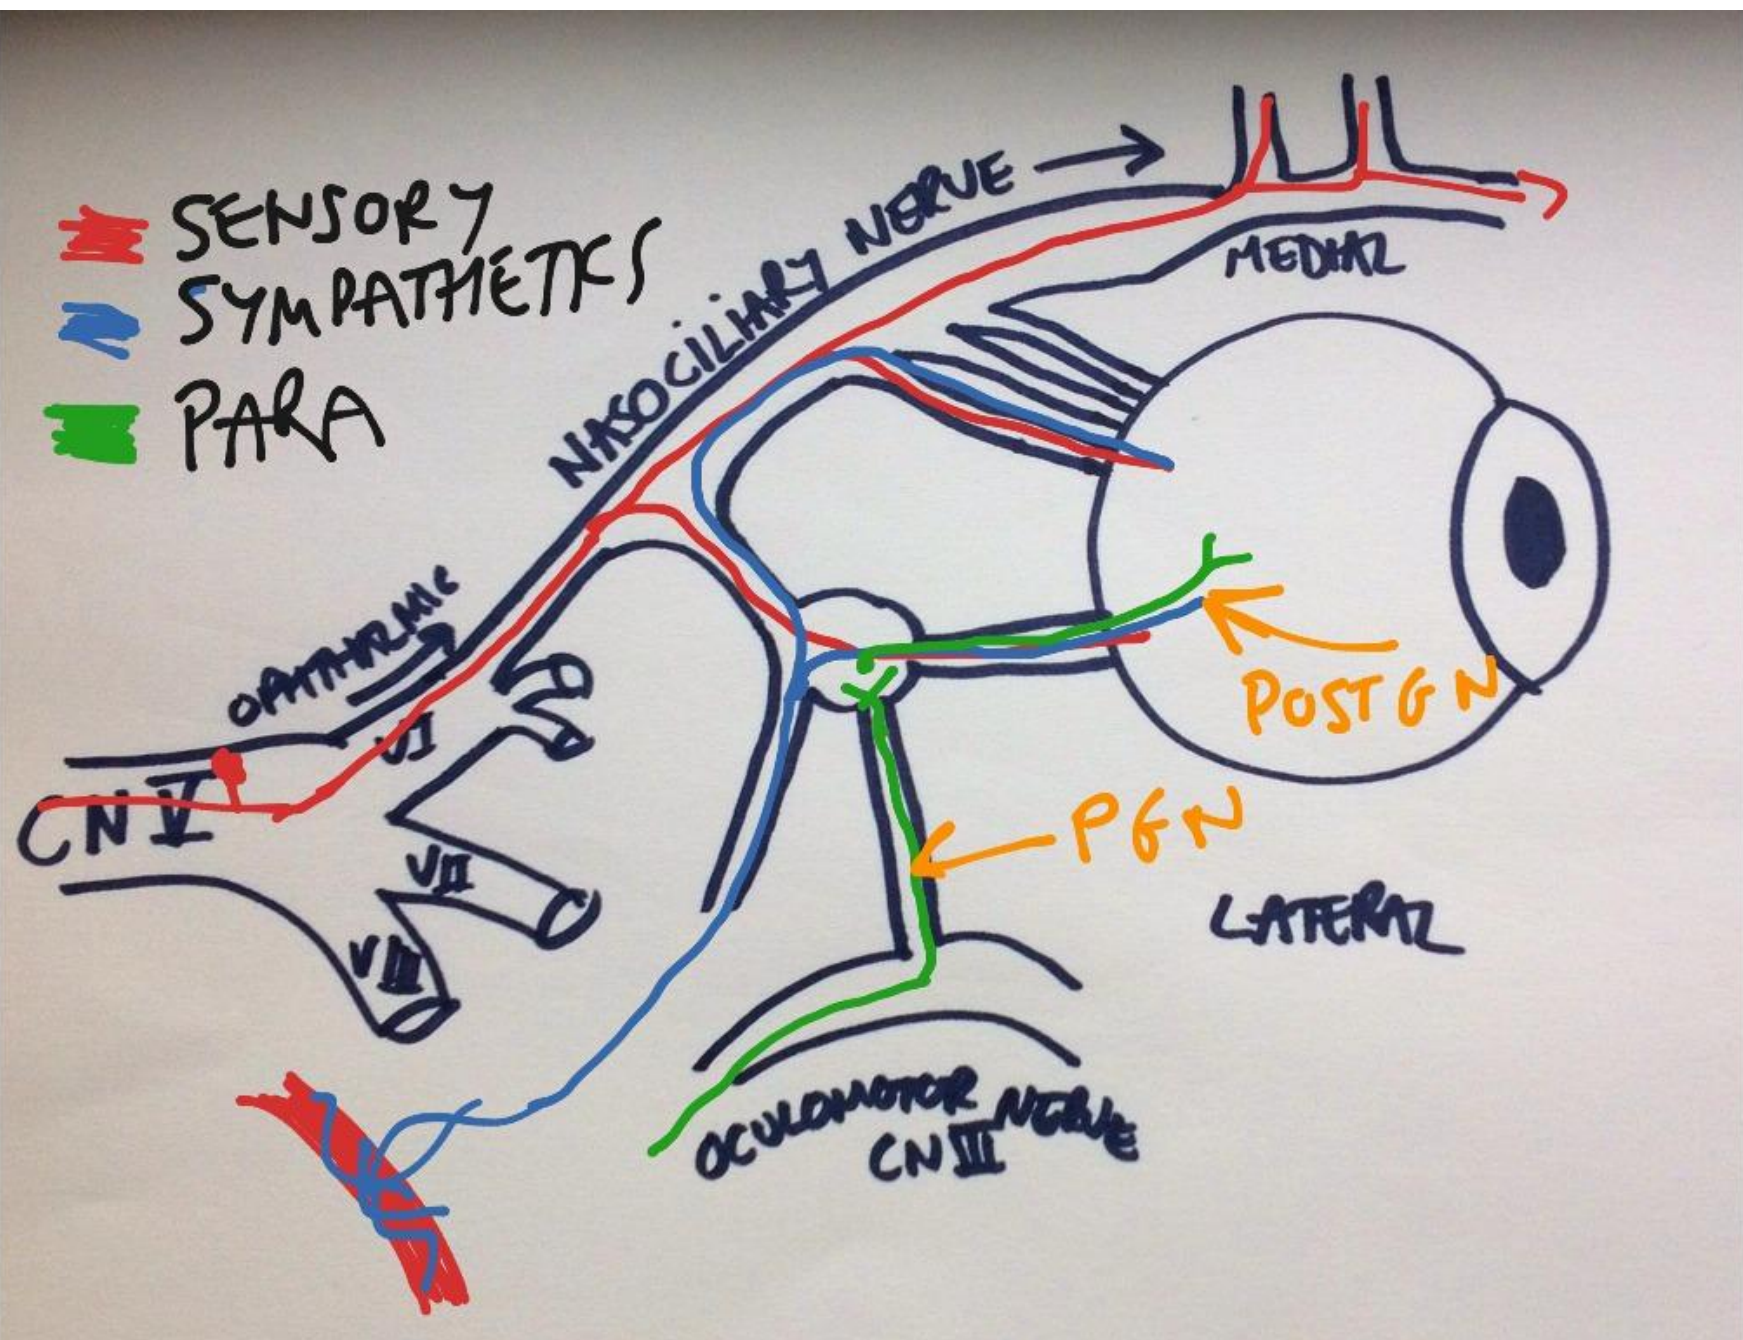 SENSORY
SYMPATHETICS
PARA
NASOCILIARY NERVE
MEDIAL
OPHTHALMIC
CN V
VI
VII
VIII
POST GN
PGN
LATERAL
OCULOMOTOR NERVE
CN III